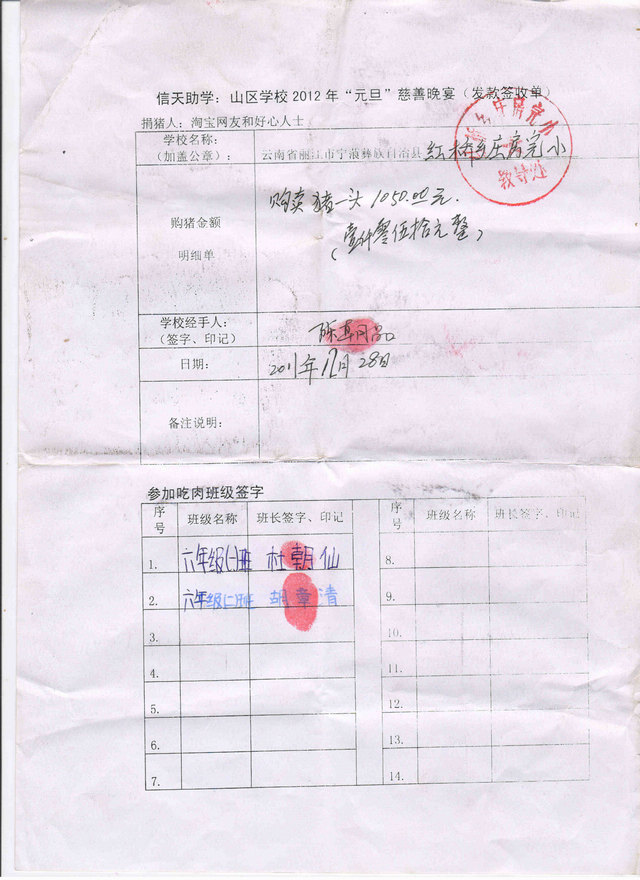 信天助学：山区学校2012年“元旦”慈善晚宴（发款签收单）
捐猪人：淘宝网友和好心人士
学校名称：
（加盖公章）：
云南省丽江市宁蒗彝族自治县 红桥乡庄房完小
教导处
购猪金额
明细单
购卖猪一头1050.00元.
（壹仟零伍拾元整）
学校经手人：
（签字、印记）
陈草品
日期：
2011年12月28日
备注说明：
参加吃肉班级签字
序号 班级名称 班长签字、印记 序号 班级名称 班长签字、印记
1. 六年级(一)班 杜朝仙 8.
2. 六年级(二)班 胡章清 9.
3. 10.
4. 11.
5. 12.
6. 13.
7. 14.